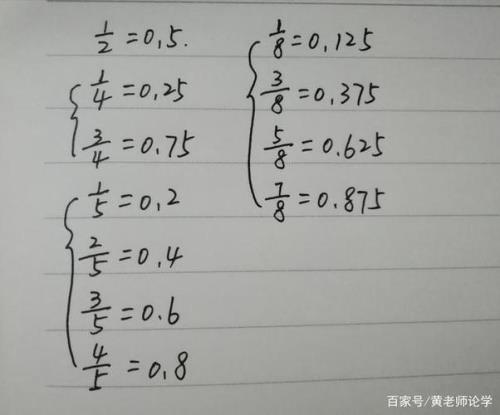 1/2 = 0.5.
1/4 = 0.25
3/4 = 0.75
1/5 = 0.2
2/5 = 0.4
3/5 = 0.6
4/5 = 0.8
1/8 = 0.125
3/8 = 0.375
5/8 = 0.625
7/8 = 0.875
百家号/黄老师论学